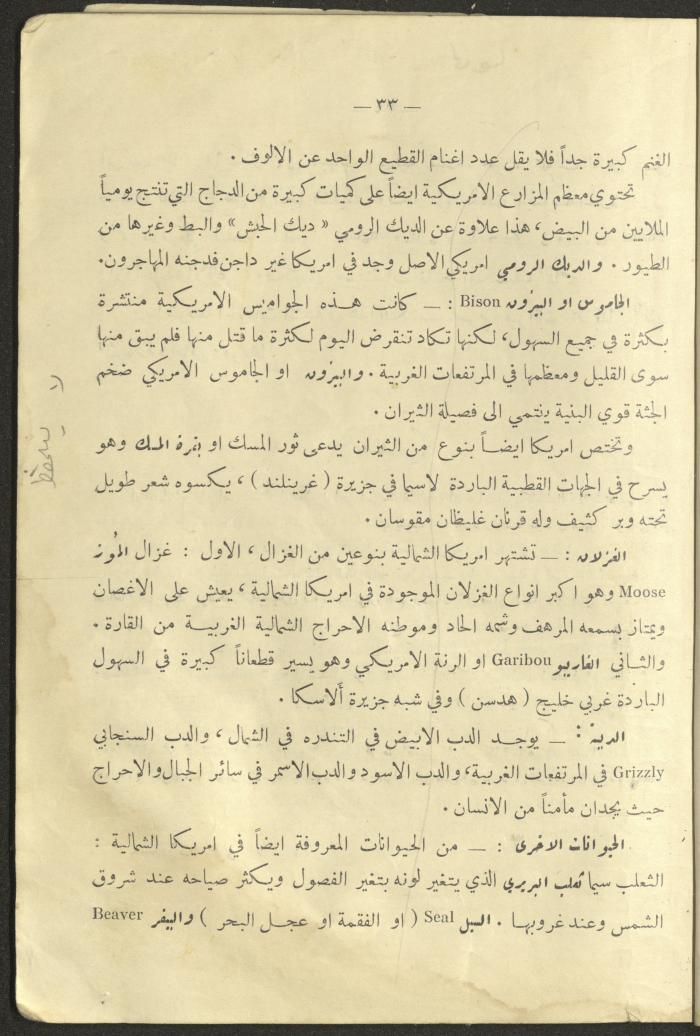 — ٣٣ —
الغنم كبيرة جداً فلا يقل عدد اغنام القطيع الواحد عن الالوف .
تحتوي معظم المزارع الامريكية ايضاً على كميات كبيرة من الدجاج التي تنتج يومياً
الملايين من البيض، هذا علاوة عن الديك الرومي « ديك الحبش» والبط وغيرها من
الطيور . والديك الرومي امريكي الاصل وجد في امريكا غير داجن فدجنه المهاجرون.
الجاموس او البيزون Bison : — كانت هذه الجواميس الامريكية منتشرة
بكثرة في جميع السهول، لكنها تكاد تنقرض اليوم لكثرة ما قتل منها فلم يبق منها
سوى القليل ومعظمها في المرتفعات الغربية . والبيزون او الجاموس الامريكي ضخم
الجثة قوي البنية ينتمي الى فصيلة الثيران .
وتختص امريكا ايضاً بنوع من الثيران يدعى ثور المسك او بقرة المسك وهو
يسرح في الجهات القطبية الباردة لاسيما في جزيرة ( غرينلند ) ، يكسوه شعر طويل
تحته وبر كثيف وله قرنان غليظان مقوسان .
الغزلان : — تشتهر امريكا الشمالية بنوعين من الغزال ، الاول : غزال المُوز
Moose وهو اكبر انواع الغزلان الموجودة في امريكا الشمالية ، يعيش على الاغصان
ويمتاز بسمعه المرهف وشمه الحاد وموطنه الاحراج الشمالية الغربية من القارة .
والثاني الغاريبو Garibou او الرنة الامريكي وهو يسير قطعاناً كبيرة في السهول
الباردة غربي خليج ( هدسن ) وفي شبه جزيرة ألاسكا .
الدببة : — يوجد الدب الابيض في التندره في الشمال ، والدب السنجابي
Grizzly في المرتفعات الغربية، والدب الاسود والدب الاسمر في سائر الجبال والاحراج
حيث يجدان مأمناً من الانسان .
الحيوانات الاخرى : — من الحيوانات المعروفة ايضاً في امريكا الشمالية :
الثعلب سيما ثعلب البربري الذي يتغير لونه بتغير الفصول ويكثر صياحه عند شروق
الشمس وعند غروبها . السيل Seal ( او الفقمة او عجل البحر ) والبيفر Beaver
لا يحفظ